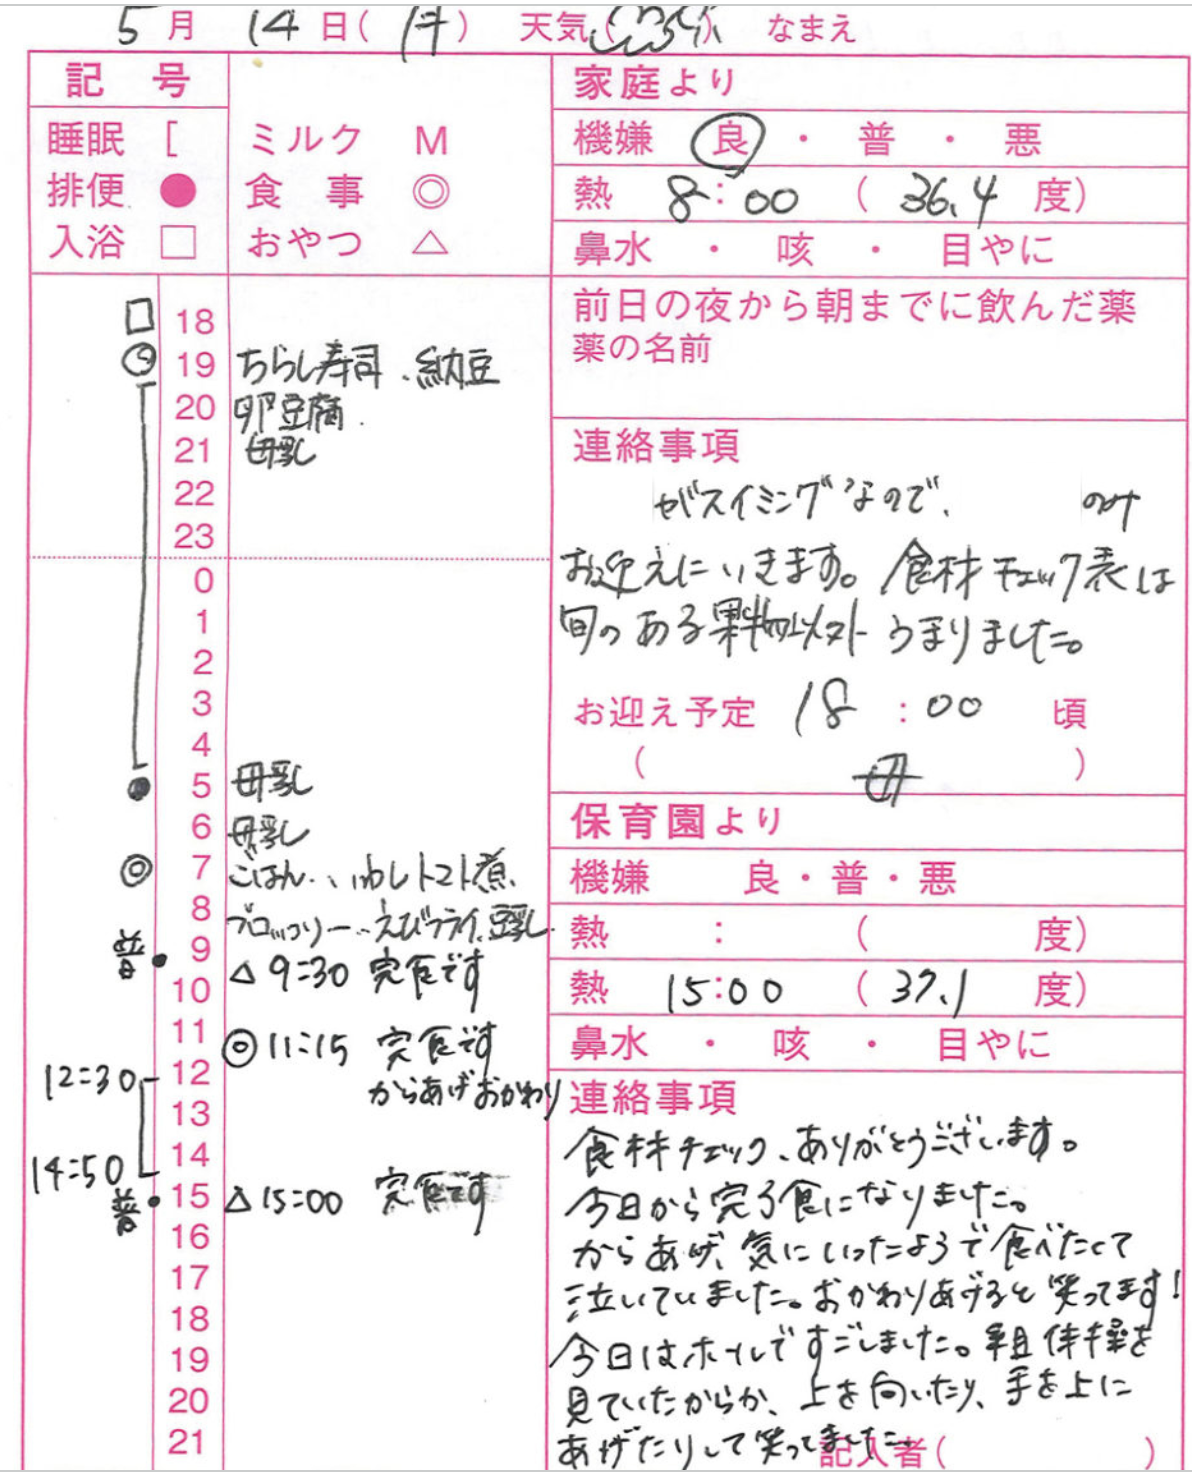 5月 14日( ) 天気( ) なまえ
記 号
睡眠 [ ミルク M
排便 ● 食 事 ◎
入浴 □ おやつ △
□ 18
◎ 19 ちらし寿司、納豆
20 卵豆腐
21 母乳
22
23
0
1
2
3
4
● 5 母乳
6 母乳
◎ 7 ごはん、いわしトマト煮、
8 ブロッコリー、えびフライ、豆乳
普 ● 9
△ 9:30 完食です
10
11 ◎ 11:15 完食です
12:30 12 からあげおかわり
13
14:50 14
普 ● 15 △ 15:00 完食です
16
17
18
19
20
21
家庭より
機嫌 良 ・ 普 ・ 悪
熱 8:00 ( 36.4 度)
鼻水 ・ 咳 ・ 目やに
前日の夜から朝までに飲んだ薬
薬の名前
連絡事項
がスイミングなので、 のみ
お迎えにいきます。食材チェック表は
旬のある果物以外うまりました。
お迎え予定 18:00 頃
( 母 )
保育園より
機嫌 良・普・悪
熱 : ( 度)
熱 15:00 ( 37.1 度)
鼻水 ・ 咳 ・ 目やに
連絡事項
食材チェック、ありがとうございます。
今日から完了食になりました。
からあげ、気にいったようで食べたくて
泣いていました。おかわりあげると笑ってます!
今日はホールですごしました。組体操を
見ていたからか、上を向いたり、手を上に
あげたりして笑ってました。
記入者( )